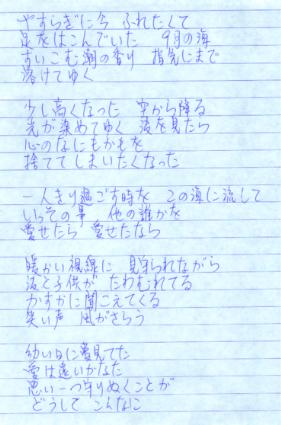 やすらぎに今 ふれたくて
足をはこんでいた 9月の海
すいこむ潮の香り 指先にまで
溶けてゆく
少し高くなった 空から降る
光が染めてゆく 波を見たら
心のなにもかもを
捨ててしまいたくなった
一人きり過ごす時を この海に流して
いっその事、他の誰かを
愛せたら 愛せたなら
暖かい視線に 見守られながら
波と子供が たわむれてる
かすかに聞こえてくる
笑い声 風がさらう
幼い日に夢見てた
愛は遠いかなた
思い一つ守りぬくことが
どうして こんなに